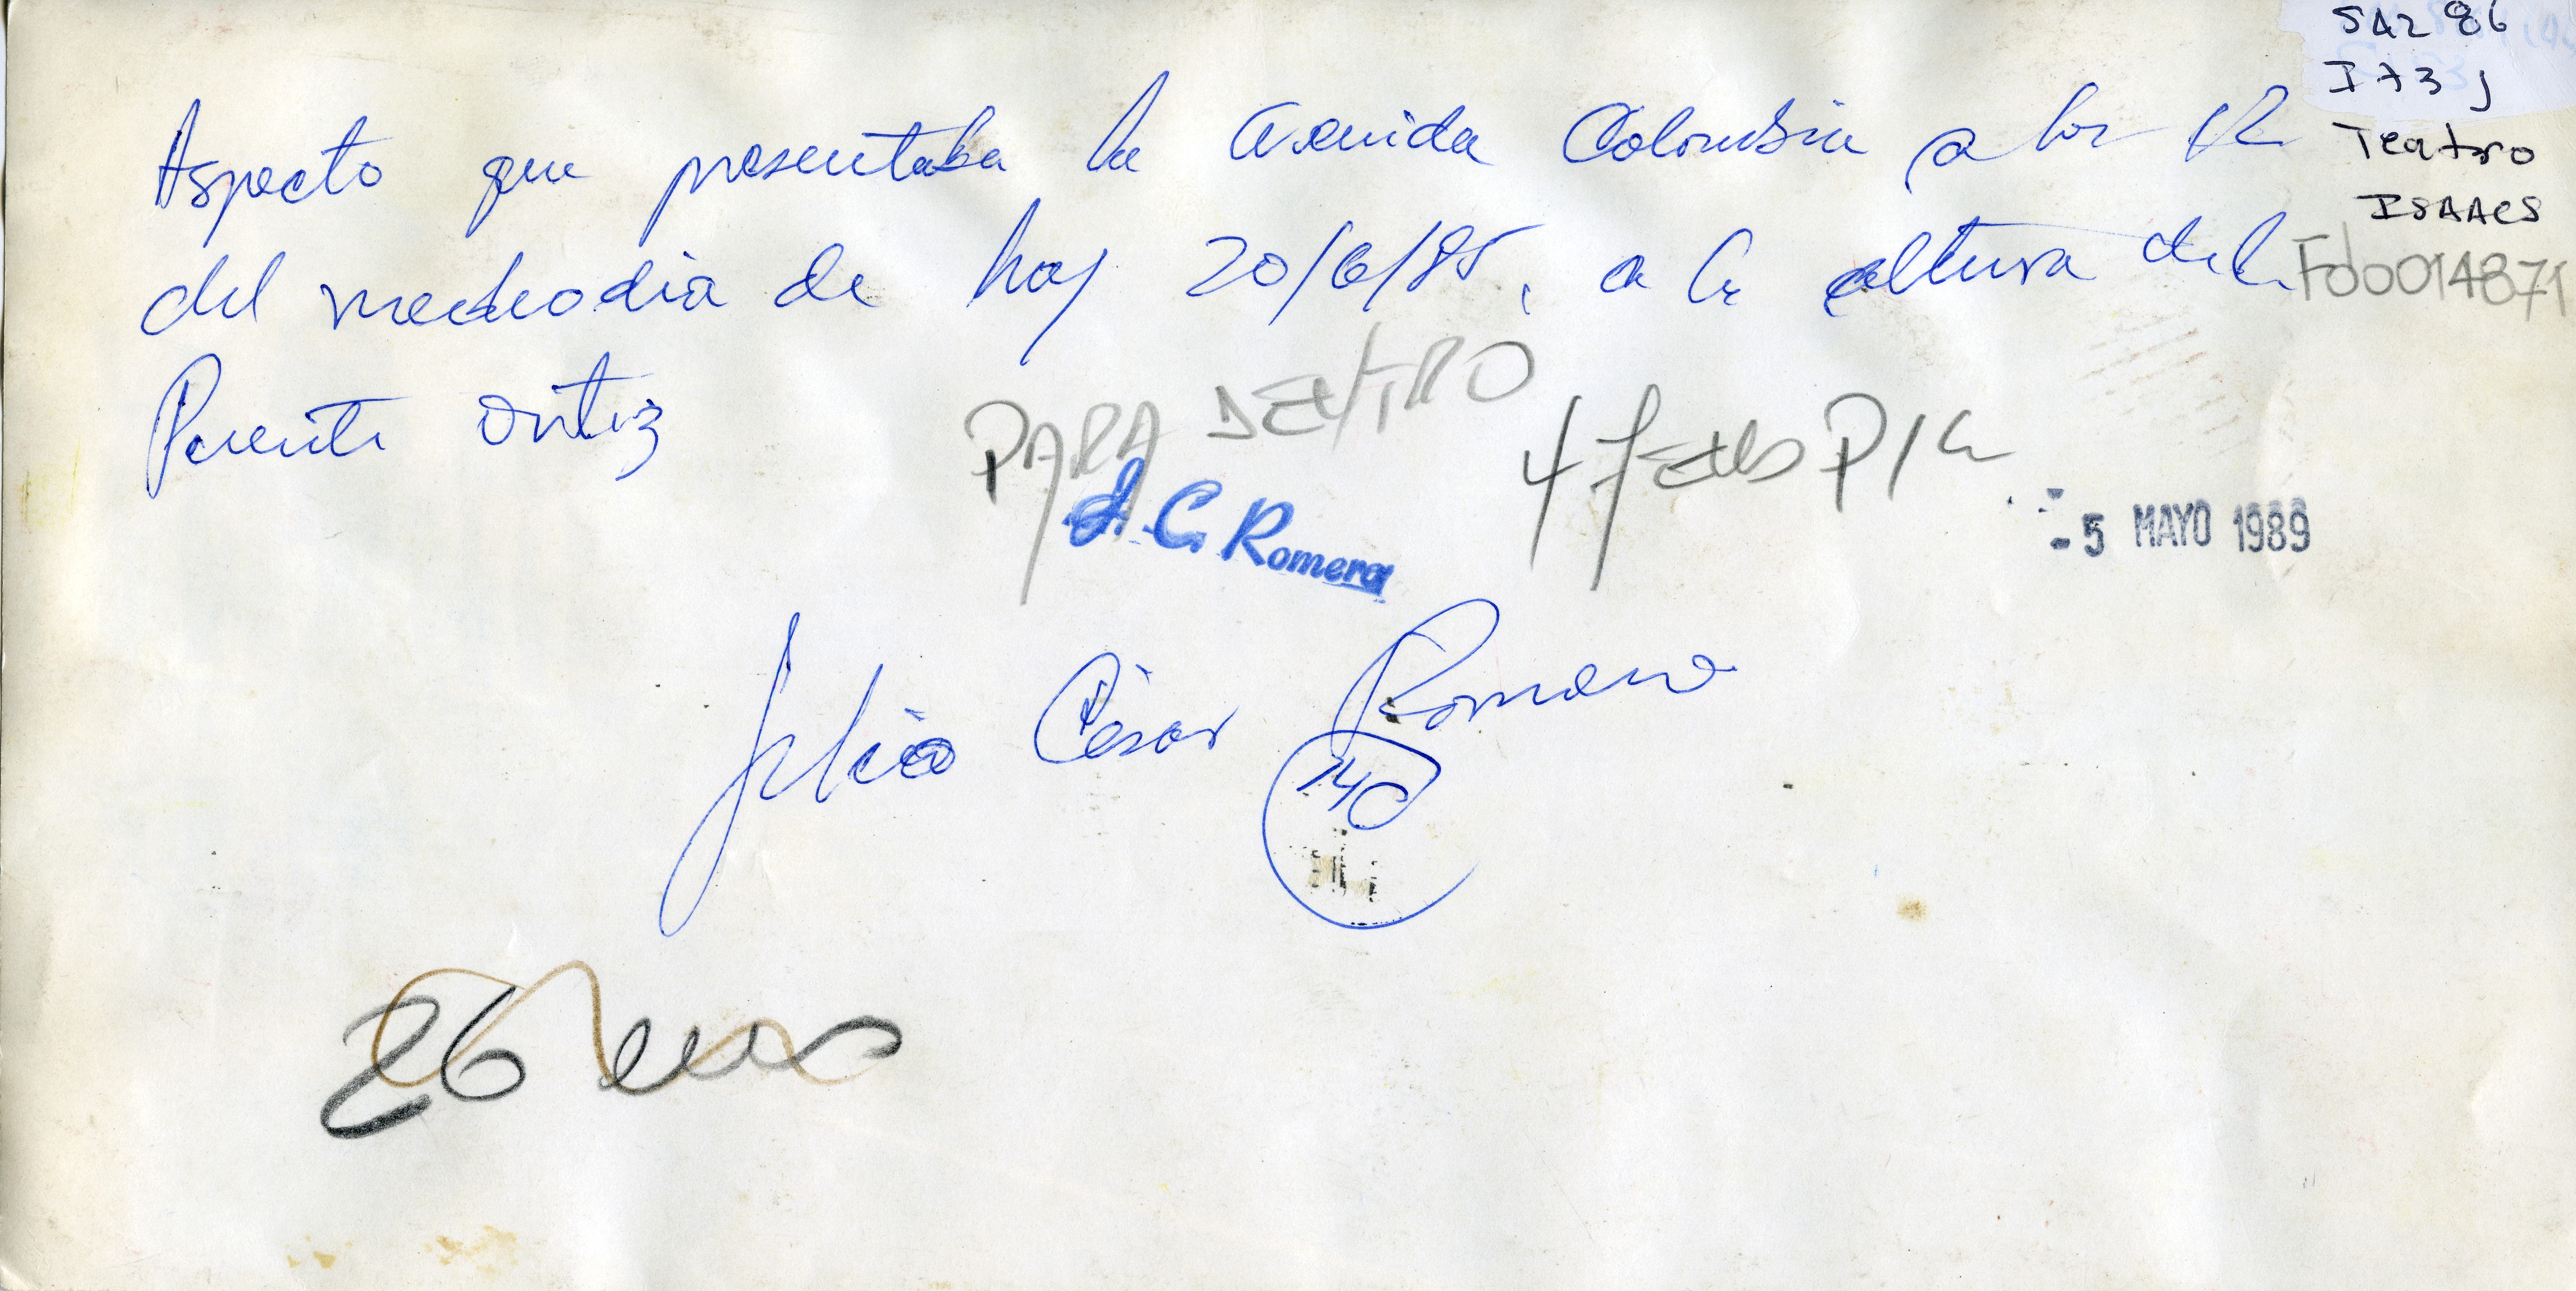 SA2 86
I73J
Teatro
ISAACS
Fdo014871
Aspecto que presentaba la avenida Colombia a las 12
del mediodia de hoy 20/6/85, a la altura del
Puente Ortiz
PARA DENTRO
J. C. Romero
- 5 MAYO 1989
Julio César Romero
140
26